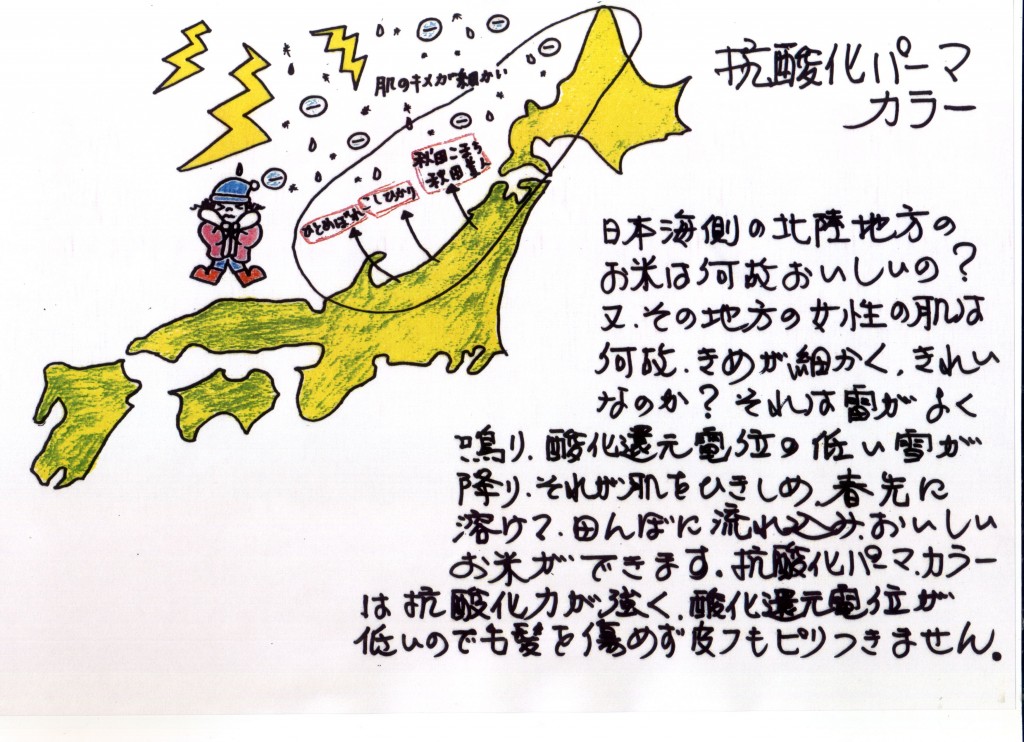 抗酸化パーマ
カラー
肌のキメが細かい
秋田こまち
秋田美人
こしひかり
ひとめぼれ
日本海側の北陸地方の
お米は何故おいしいの？
又、その地方の女性の肌は
何故、きめが細かく、きれい
なのか？それは雷がよく
鳴り、酸化還元電位の低い雪が
降り、それが肌をひきしめ、春先に
溶けて、田んぼに流れ込み、おいしい
お米ができます。抗酸化パーマ、カラー
は抗酸化力が強く、酸化還元電位が
低いのでも髪を傷めず皮フもピリつきません。